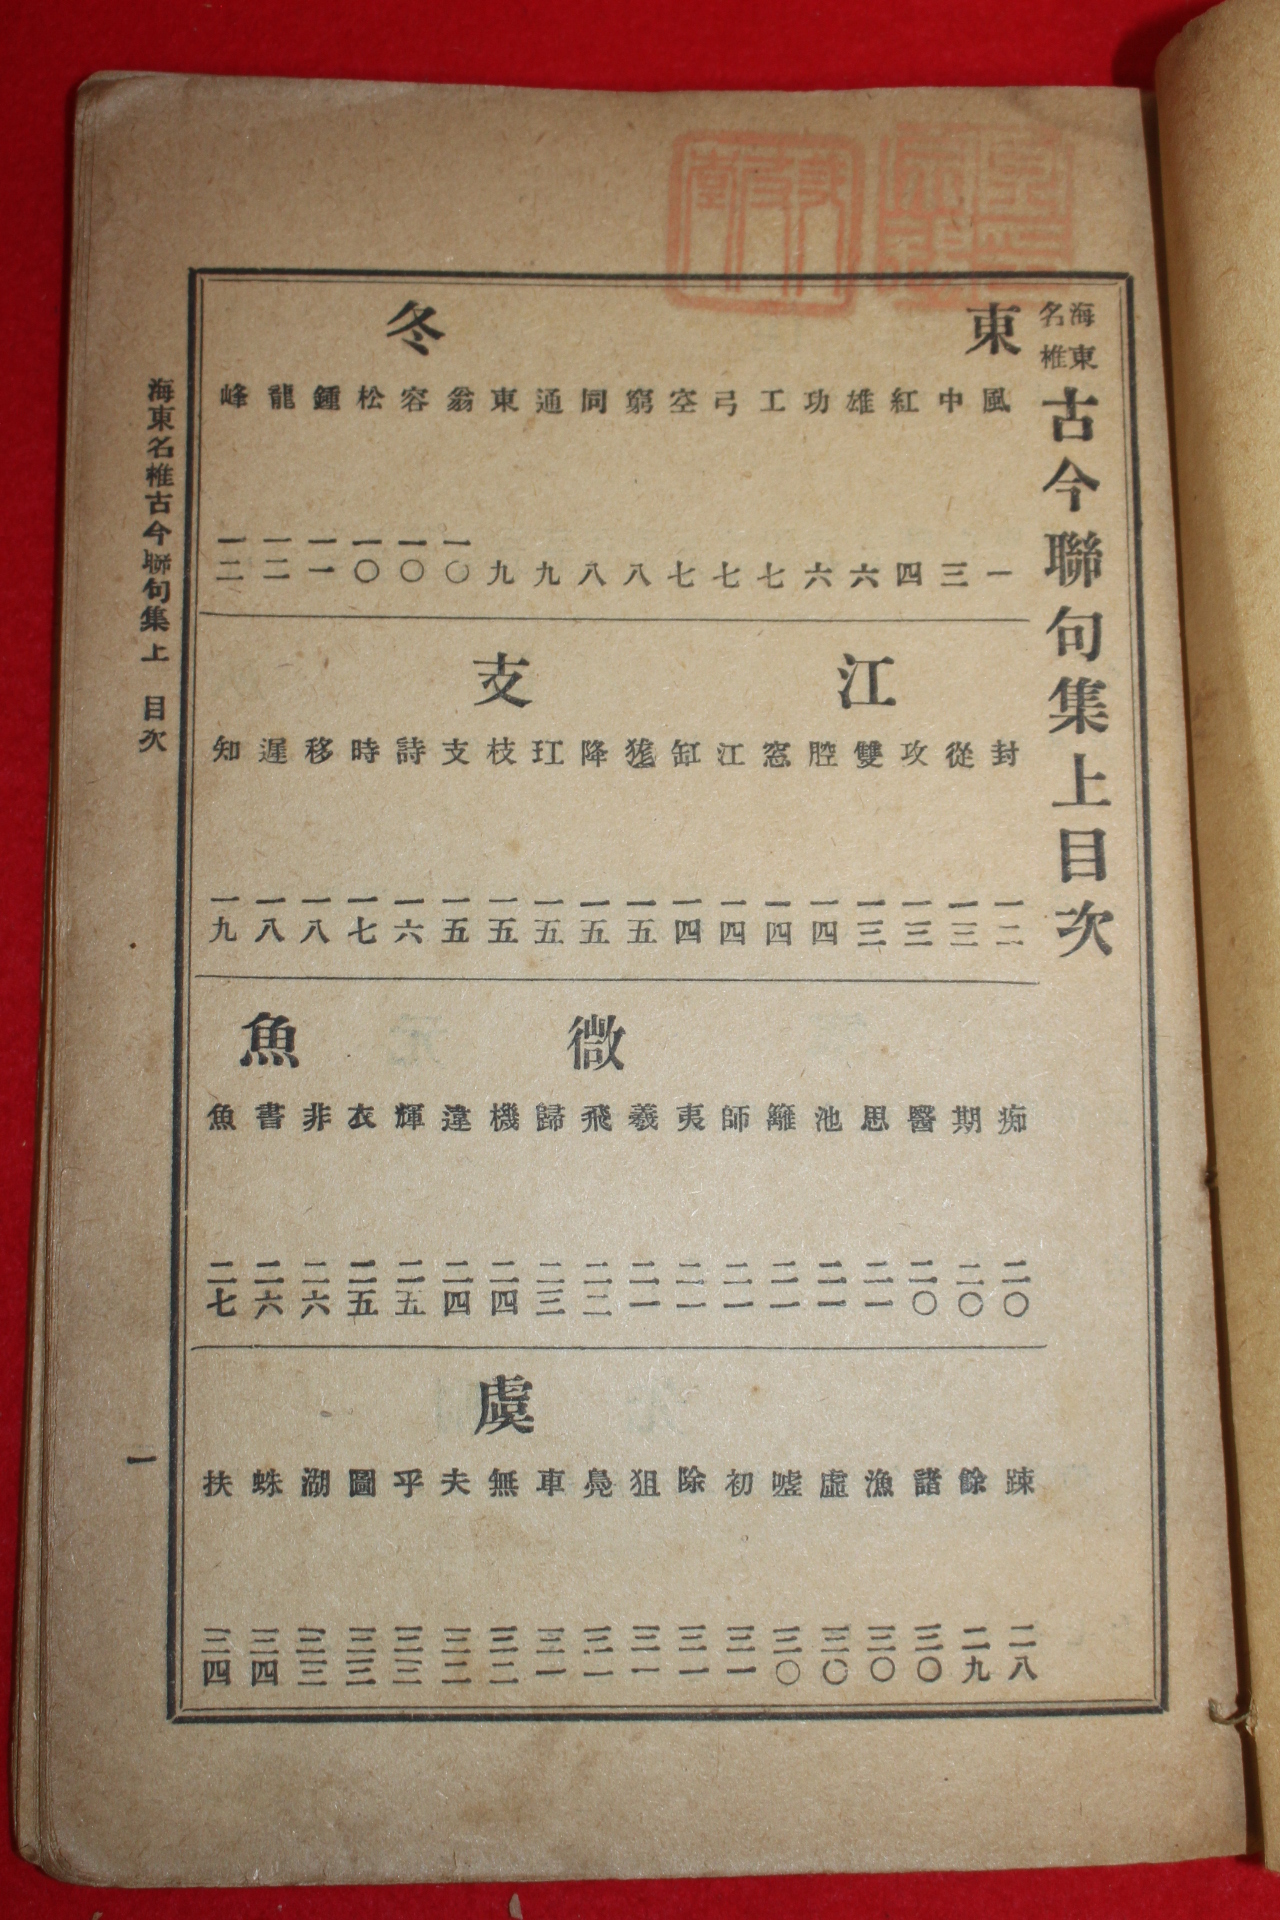 海東名椎古今聯句集上目次
東
風 一
中 三
紅 四
雄 六
功 六
工 七
弓 七
空 七
窮 八
同 八
通 九
東 九
翁 一〇
冬
容 一〇
松 一〇
鍾 一一
龍 一二
峰 一二
封 一二
從 一三
攻 一三
江
雙 一三
腔 一四
窓 一四
江 一四
缸 一四
狵 一五
降 一五
玒 一五
支
枝 一五
支 一五
詩 一六
時 一七
移 一八
遲 一八
知 一九
痴 二〇
期 二〇
醫 二〇
思 二一
池 二一
籬 二一
師 二一
夷 二一
羲 二一
微
飛 二二
歸 二三
機 二四
違 二四
輝 二五
衣 二五
非 二六
魚
書 二六
魚 二七
踈 二八
餘 二九
諸 三〇
漁 三〇
虛 三〇
噓 三〇
初 三一
除 三一
狙 三一
鳧 三一
車 三一
虞
無 三二
夫 三二
乎 三三
圖 三三
湖 三三
蛛 三四
扶 三四
海東名椎古今聯句集上 目次
一